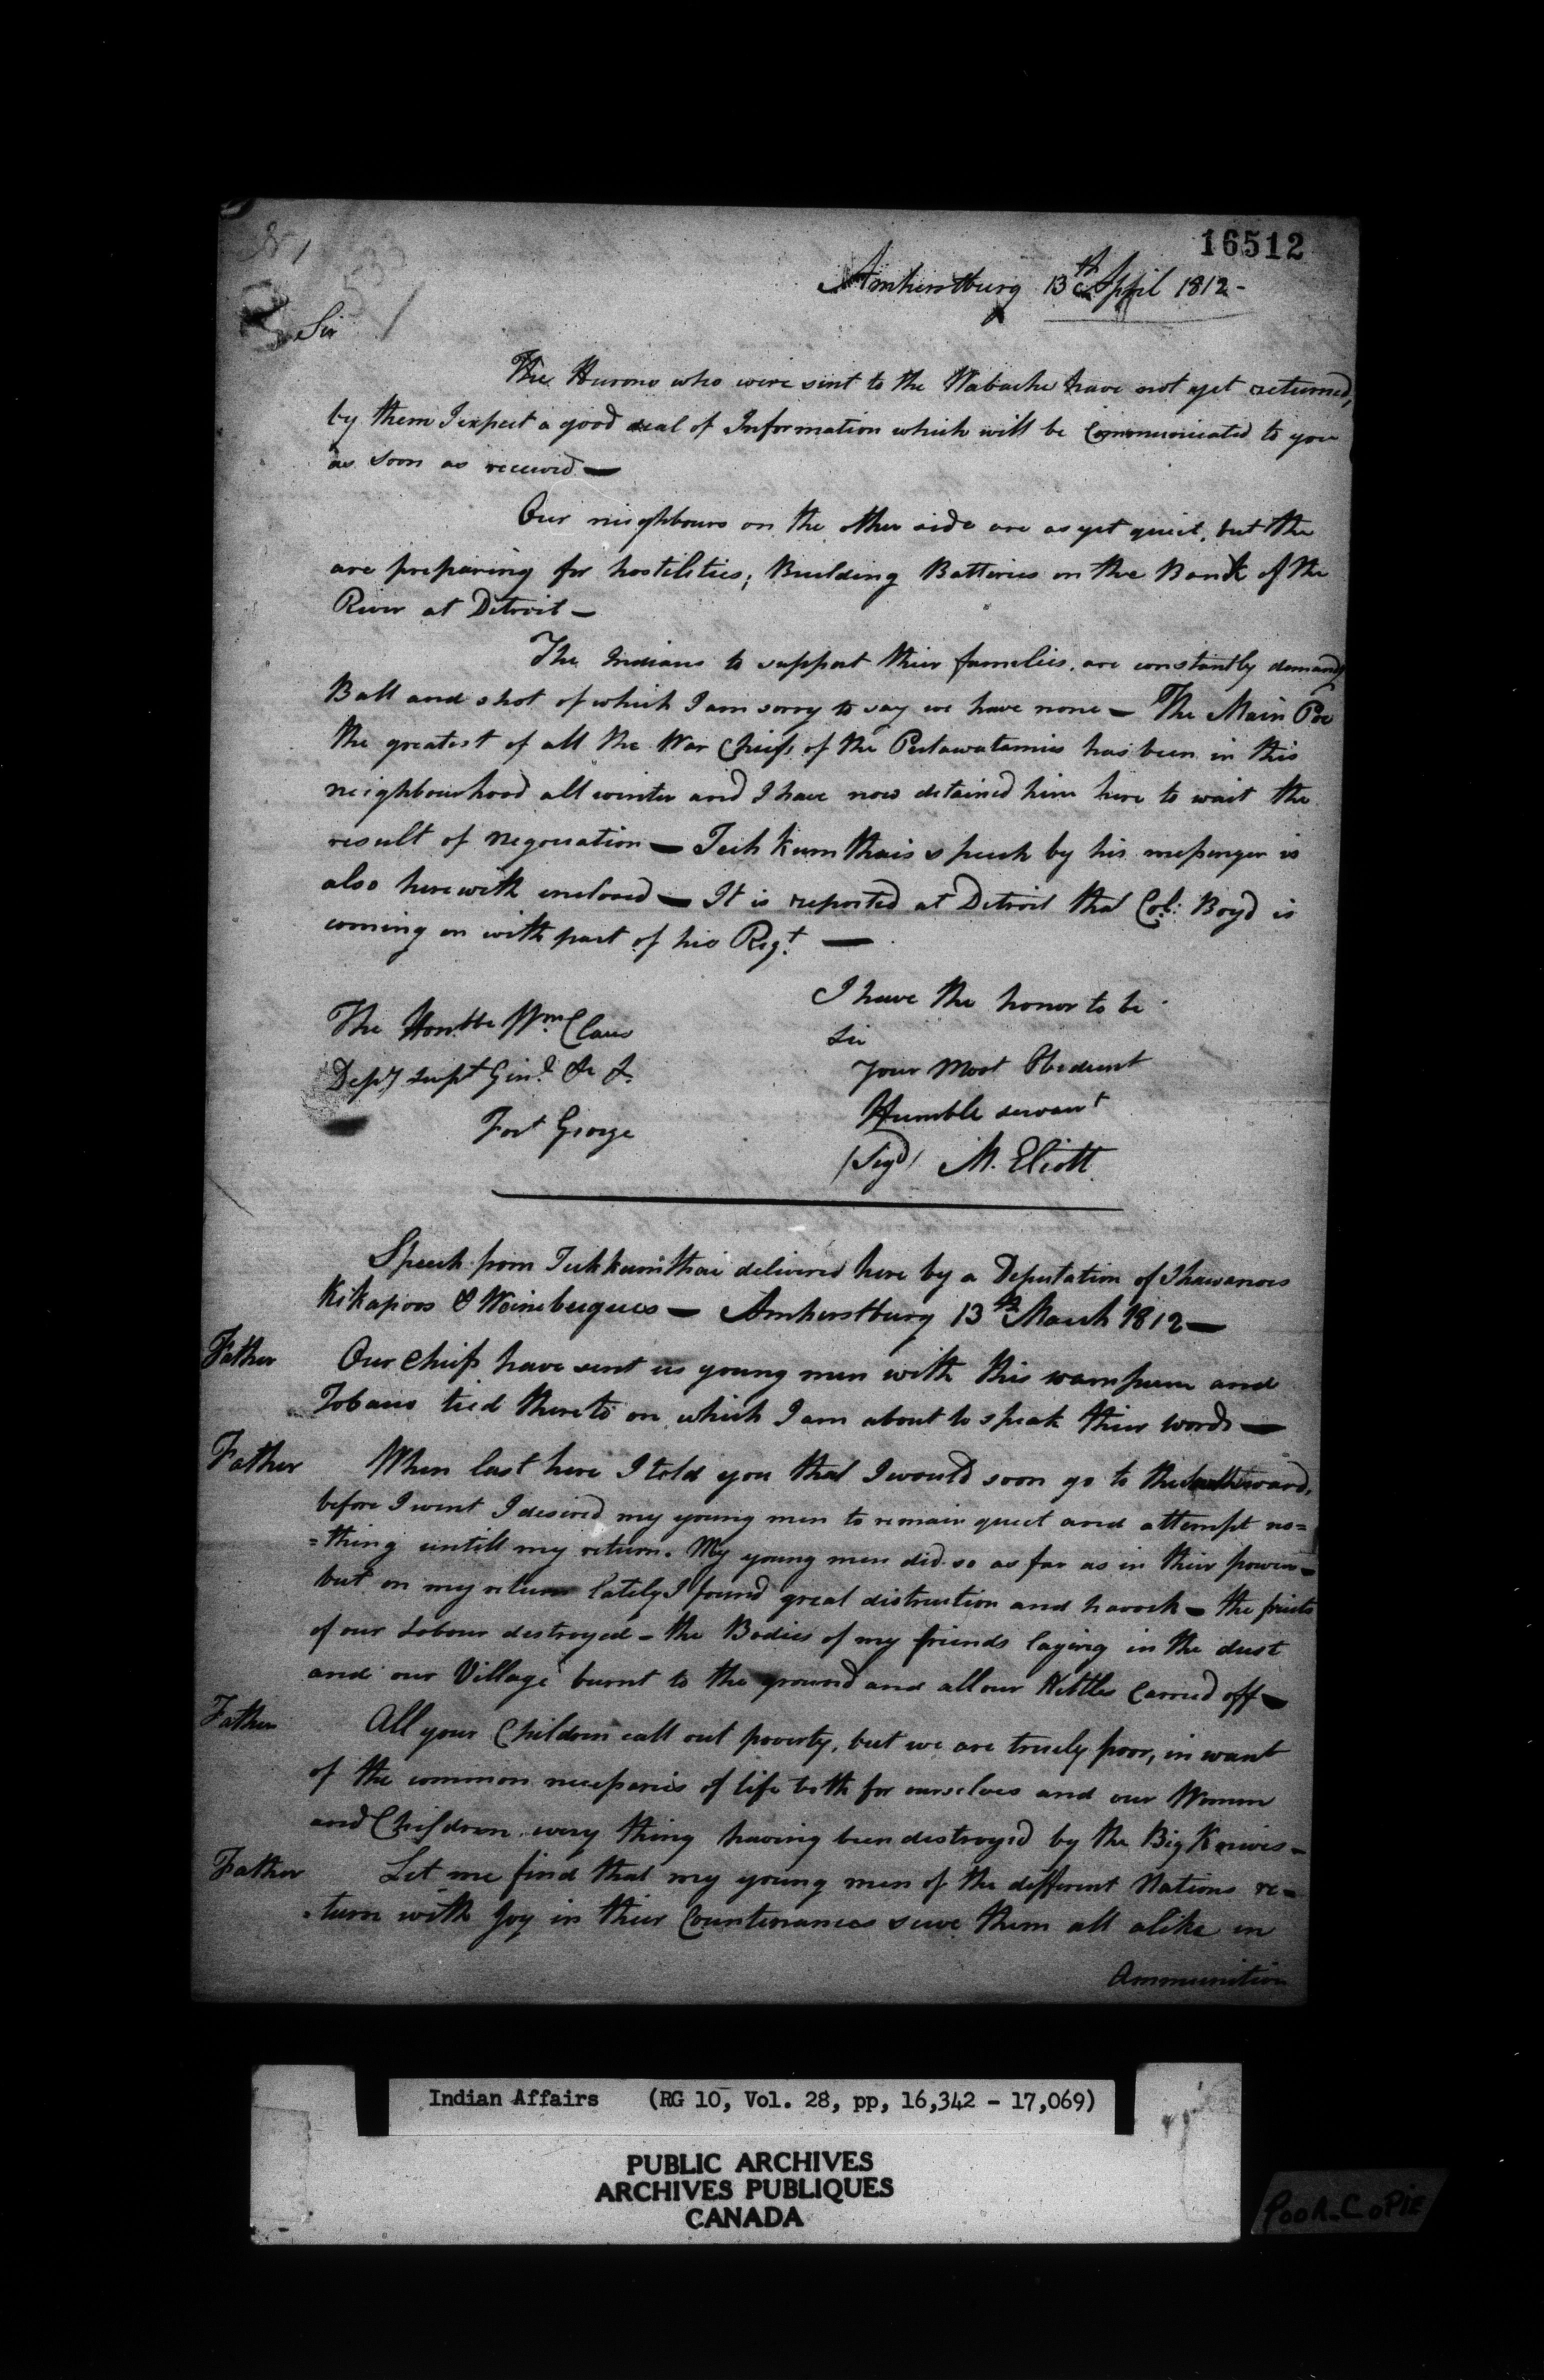 16512
Amherstburg 13th April 1812 -
Sir
The Hurons who were sent to the Wabache have not yet returned,
by them I expect a good deal of Information which will be Communicated to you
as soon as received —
Our neighbours on the other side are as yet quiet, but the
are preparing for hostilities; Building Batteries on the Bank of the
River at Detroit —
The Indians to support their families, are constantly demandg
Ball and shot of which I am sorry to say we have none — The Main Poc
the greatest of all the War Chiefs of the Putawatamies has been in this
neighbourhood all winter and I have now detained him here to wait the
result of Negociation — Tech kum thais speech by his messenger is
also herewith enclosed — It is reported at Detroit that Col: Boyd is
coming on with part of his Regt. —
I have the honor to be
Sir
Your Most Obedient
Humble servant
(Sigd) M. Elliott
The Honble Wm Claus
Depy supt Genl &
Fort George
Speech from Tekkumthai delivered here by a Deputation of Shawanoes
Kikapoos & Wainebegues — Amherstburg 13th March 1812 —
Father Our Chiefs have sent us young men with this wampum and
Tobacco tied thereto on which I am about to speak their words —
Father When last here I told you that I would soon go to the Southward,
before I went I desired my young men to remain quiet and attempt no=
=thing untill my return. My young men did so as far as in their power —
but on my return lately I found great distruction and havock — the fruits
of our Labour destroyed — the Bodies of my friends laying in the dust
and our Village burnt to the ground and all our Kettles carried off —
Father All your Children call out poverty, but we are truely poor, in want
of the common necessaries of life both for ourselves and our Women
and Children every thing having been destroyed by the Big Knives —
Father Let me find that my young men of the different Nations re=
=turn with Joy in their Countenances serve them all alike in
Ammunition
Indian Affairs (RG 10, Vol. 28, pp, 16,342 - 17,069)
PUBLIC ARCHIVES
ARCHIVES PUBLIQUES
CANADA
POOR_COPIE